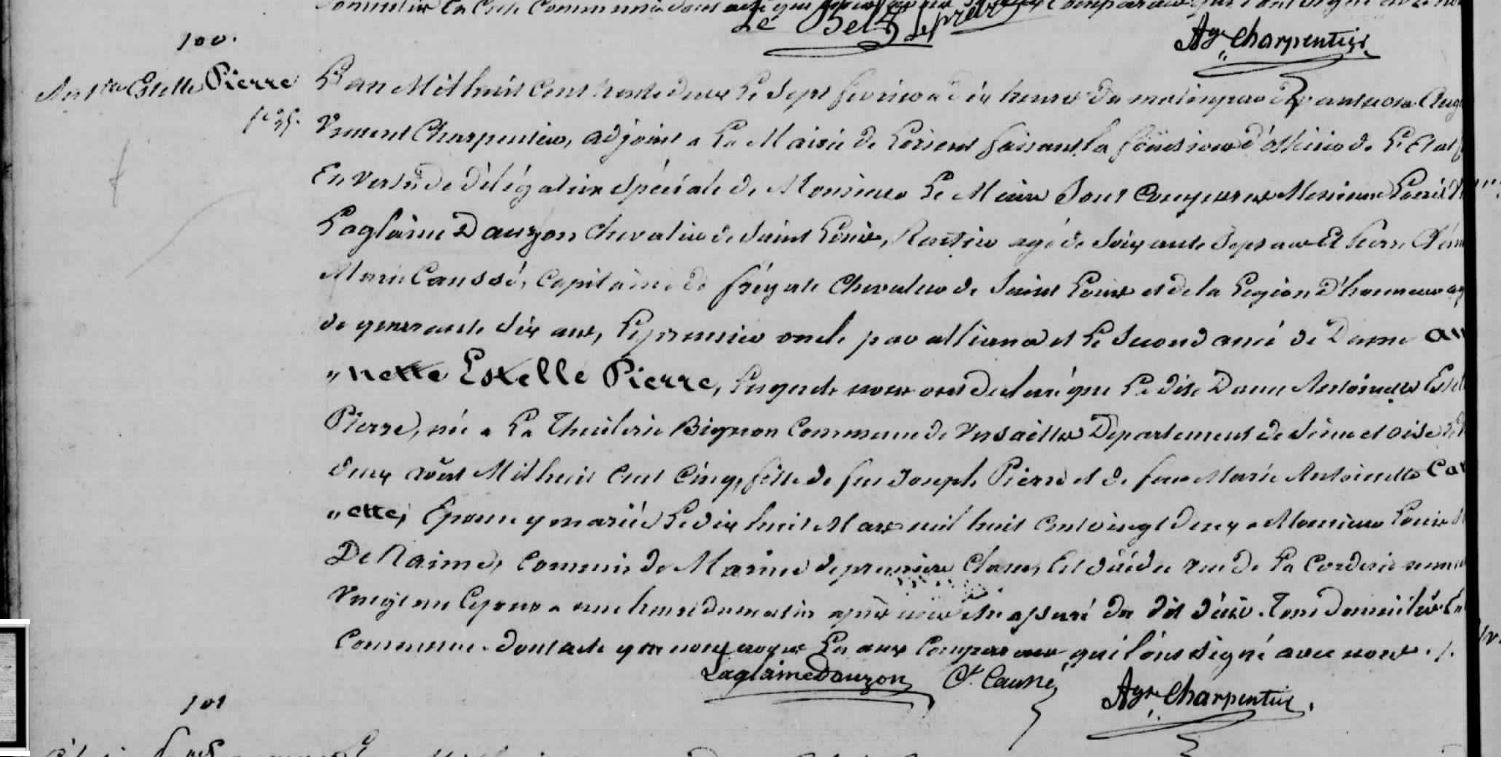 Le Bel Leprêtre
Agn Charpentier
100.
Antte Estelle Pierre
L'an Mil huit Cent trente deux Le Sept février a dix heures du matin par Devant nous Aug
Vincent Charpentier, adjoint a La Mairie de Lorient faisant la fonction d'officier de L'Etat
En vertu de délégation Spéciale de Monsieur Le Maire Sont Comparus Messieurs Louis
Laglaine Dauzon Chevalier de Saint Louis, Rentier agé de Soixante Sept ans Et Pierre
Marie Caussé, Capitaine de frégate Chevalier de Saint Louis et de la Légion D'honneur ag
de quarante Six ans, Le premier oncle par alliance et Le Second ami de Dame An
"nette Estelle Pierre, Lesquels nous ont declaré que La dite Dame Antoinette Estel
Pierre, née a La Thuilerie Bignon Commune de Versailles Département de Seine et oise
deux août Mil huit Cent Cinq, fille de feu Joseph Pierre et de feue Marie Antoinette Ca
"ette, Epouse y mariée Le dix huit Mars mil huit Cent vingt deux a Monsieur Louis
De Naime, Commis de Marine de première Classe, Est décédée rue de La Corderie num
Vingt un Ce jour a une heure du matin après nous être assuré du dit décès. Tous domiciliés En
Commune. Dont acte que nous avons Lu aux Comparans qui l'ont signé avec nous ./.
Laglaine Dauzon Ct. Caussé
Agn Charpentier.
101